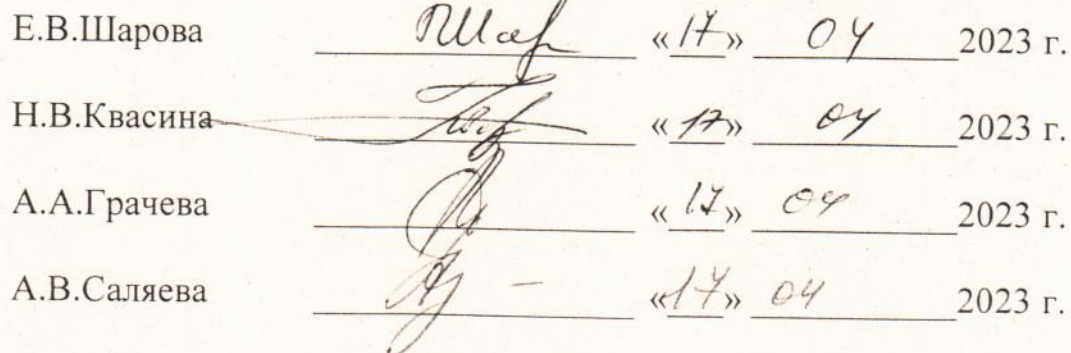 Е.В.Шарова «17» 04 2023 г.
Н.В.Квасина «17» 04 2023 г.
А.А.Грачева «17» 04 2023 г.
А.В.Саляева «17» 04 2023 г.